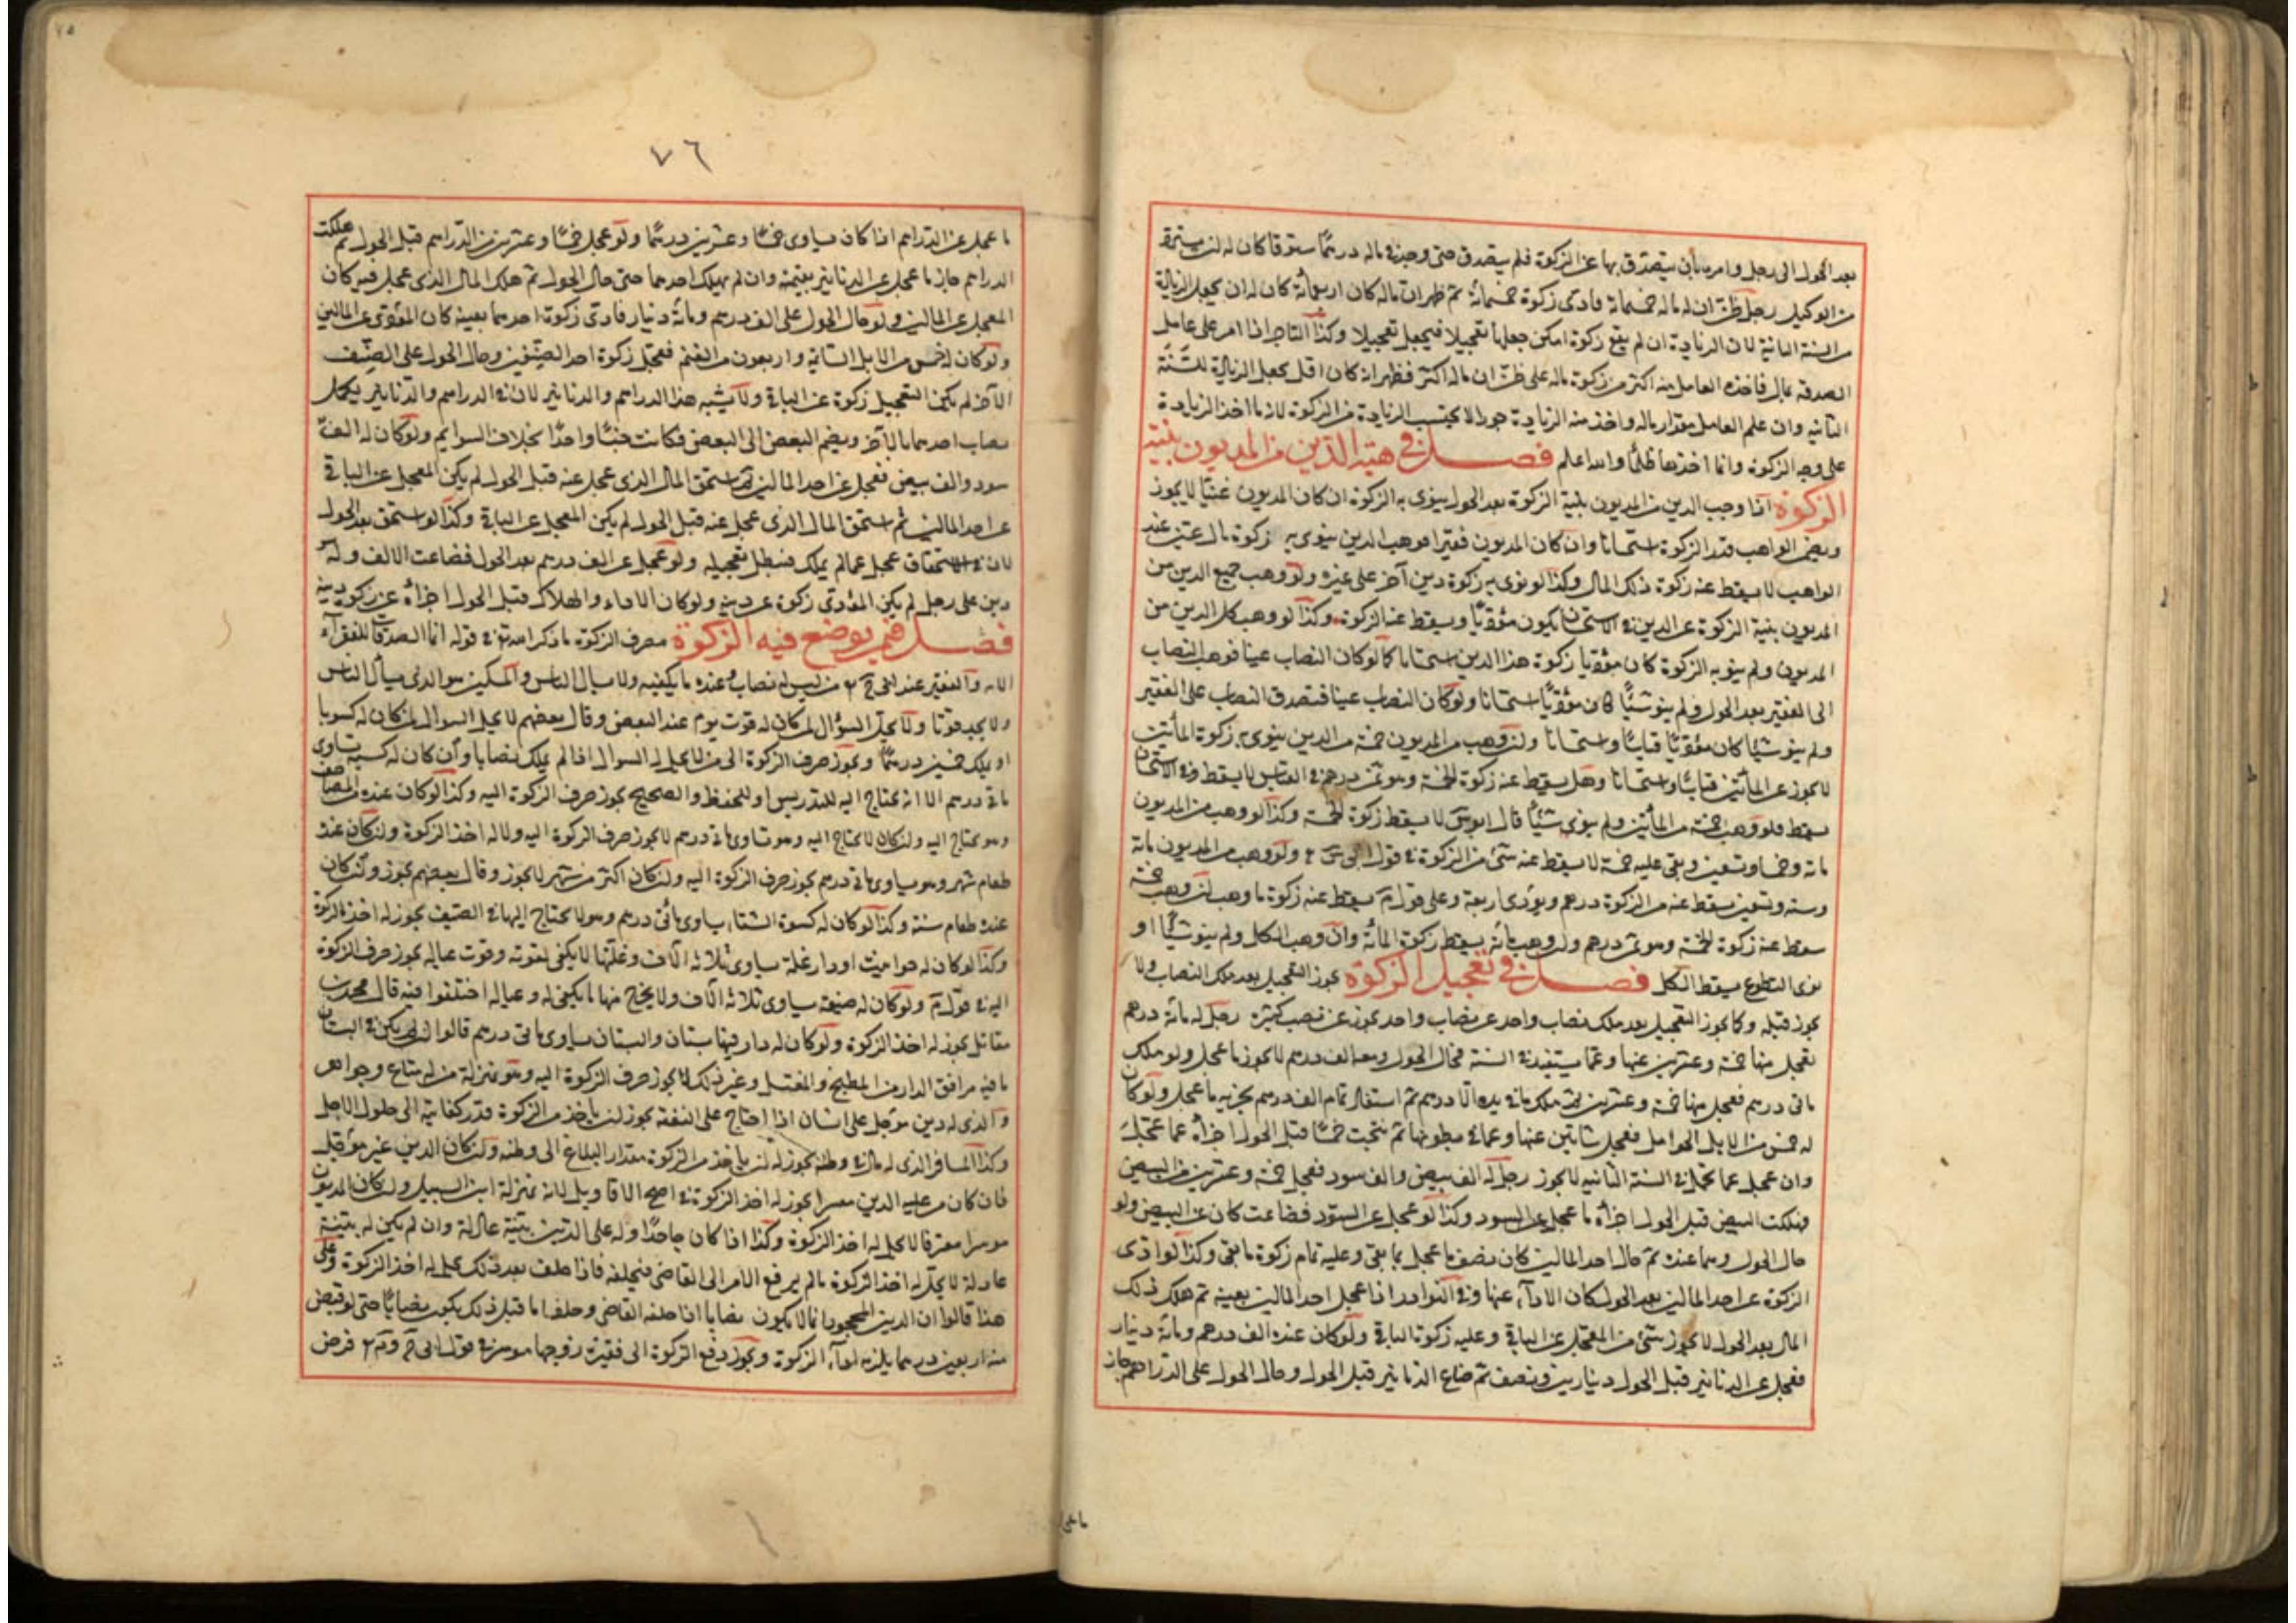 بعد الحول الى رجل وامره بأن يتصدق بها عن الزكوة فلم يتصدق حتى وجد في ماله درهمًا ستوقا كان له ان يسترد
من الوكيل رجل ظن ان له ماله خمسمائة فادى زكوة خمسمائة ثم ظهر ان ماله كان اربعمائة كان له ان يجعل الزيادة
من السنة الثانية لان الزيادة ان لم يقع زكوة امكن جعلها تعجيلا فيجعل تعجيلا وكذا التاجر اذا امر على عامل
الصدقة بمال فاخذ العامل منه اكثر من زكوة ماله على ظن ان ماله اكثر فظهر انه كان اقل يجعل الزيادة للسنة
الثانية وان علم العامل مقدار ماله واخذ منه الزيادة جورا لا يحتسب الزيادة من الزكوة لانه ما اخذ الزيادة
على وجه الزكوة وانما اخذها ظلمًا والله اعلم فصل في هبة الدين من المديون بنية
الزكوة اذا وهب الدين من المديون بنية الزكوة بعد الحول ينوى به الزكوة ان كان المديون غنيًا لا يجوز
ويضمن الواهب قدر الزكوة استحسانا وان كان المديون فقيرا فوهب الدين ينوى به زكوة مال عين عند
الواهب لا يسقط عنه زكوة ذلك المال وكذا لو نوى به زكوة دين آخر على غيره ولو وهب جميع الدين من
المديون بنية الزكوة عن الدين في الاستحسان يكون مؤديًا ويسقط عنه الزكوة وكذا لو وهب كل الدين من
المديون ولم ينو به الزكوة كان مؤديا زكوة هذا الدين استحسانا كما لو كان النصاب عينا فوهب النصاب
الى الفقير بعد الحول ولم ينو شيئًا كان مؤديًا استحسانا ولو كان النصاب عينا فتصدق النصاب على الفقير
ولم ينو شيئا كان مؤديًا قياسًا واستحسانا ولو وهب من المديون خمسة من الدين ينوى به زكوة المأتين
لا يجوز عن المأتين قياسًا واستحسانا وهل يسقط عنه زكوة الخمسة وهو ثمن درهم في القياس لا يسقط وفي الاستحسان
يسقط فلو وهب خمسة من المأتين ولم ينوى شيئًا قال ابو يوسف لا يسقط زكوة الخمسة وكذا لو وهب من المديون
مائة وخمسا وتسعين وبقى عليه خمسة لا يسقط عنه شئ من الزكوة في قول ولو وهب من المديون مائة
وستة وتسعين يسقط عنه من الزكوة درهم ويؤدى اربعة وعلى قول م يسقط عنه زكوة ما وهب ان وهب خمسة
يسقط عنه زكوة الخمسة وهو ثمن درهم ولو وهب مائة يسقط زكوة المائة وان وهب الكل ولم ينو شيئًا او
نوى التطوع يسقط الكل فصل في تعجيل الزكوة يجوز التعجيل بعد ملك النصاب ولا
يجوز قبله وكما يجوز التعجيل بعد ملك نصاب واحد عن نصاب واحد يجوز عن نصب كثيرة رجل له مأتا درهم
فعجل منها خمسة وعشرين عنها وعما يستفيد في السنة فحال الحول ومعه الف درهم لا يجوز ما عجل ولو ملك
مائى درهم فعجل منها خمسة وعشرين ثم ملك ما في يده الا درهم ثم استفاد تمام الف درهم يجزيه ما عجل ولو كان
له خمس من الابل الحوامل فعجل شاتين عنها وعما في بطونها ثم نتجت خمسًا قبل الحول اجزأه عما عجل
وان عجل عما تحمل في السنة الثانية لا يجوز رجل له الف بيض والف سود فعجل خمسة وعشرين عن البيض
فهلكت البيض قبل الحول اجزأه ما عجل عن السود وكذا لو عجل عن السود فضاعت كان عن البيض ولو
حال الحول وهما عنده ثم هلك احد المالين كان نصف ما عجل بما بقى وعليه تمام زكوة ما بقى وكذا لو ادى
الزكوة عن احد المالين بعد الحول كان الاداء عنها وفي النوادر اذا عجل احد المالين بعينه ثم هلك ذلك
المال بعد الحول لا يجوز شئ من المعجل عن الباقى وعليه زكوة الباقى ولو كان عنده الف درهم ومائة دينار
فعجل عن الدنانير قبل الحول دينارين ونصف ثم ضاع الدنانير قبل الحول وحال الحول على الدراهم جاز
ما عجل
٧٦
٧٥
ما عجل عن الدراهم اذا كان يساوى خمسًا وعشرين درهمًا ولو عجل خمسًا وعشرين من الدراهم قبل الحول ثم هلكت
الدراهم جاز ما عجل عن الدنانير بقيمته وان لم يهلك احدهما حتى حال الحول ثم هلك المال الذى عجل فيه كان
المعجل عن المالين ولو حال الحول على الف درهم ومائة دينار فادى زكوة احدهما بعينه كان المؤدى عن المالين
ولو كان له خمس من الابل السائمة واربعون من الغنم فعجل زكوة احد الصنفين وحال الحول على الصنف
الآخر لم يكن التعجيل زكوة عن الباقى ولا يشبه هذا الدراهم والدنانير لان في الدراهم والدنانير يكمل
نصاب احدهما بالآخر ويضم البعض الى البعض فكانت جنسًا واحدًا بخلاف السوايم ولو كان له الف
سود والف بيض فعجل عن احد المالين ثم استحق المال الذى عجل عنه قبل الحول لم يكن المعجل عن الباقى
عن احد المالين ثم استحق المال الذى عجل عنه قبل الحول لم يكن المعجل عن الباقى وكذا لو استحق بعد الحول
لان في الاستحقاق عجل عما لم يملك فبطل تعجيله ولو عجل عن الف درهم بعد الحول فضاعت الالف وله
دين على رجل لم يكن المؤدى زكوة عن دينه ولو كان الاداء والهلاك قبل الحول اجزأه عن زكوة دينه
فصل فيمن يوضع فيه الزكوة مصرف الزكوة ما ذكر الله تع في قوله انما الصدقات للفقراء
الآية والفقير عند من ليس له نصاب وعنده ما يكفيه ولا يسأل الناس والمسكين هو الذى يسأل الناس
ولا يجد قوتا ولا يحل السؤال لمن كان له قوت يوم عند البعض وقال بعضهم لا يحل السؤال لمن كان له كسوبا
او يملك خمسين درهمًا ويجوز صرف الزكوة الى من لا يحل له السؤال اذا لم يملك نصابا وان كان له كتب تساوى
مائى درهم الا انه يحتاج اليه للتدريس او للحفظ والتصحيح يجوز صرف الزكوة اليه وكذا لو كان عنده من المصاحف
وهو يحتاج اليه وان كان لا يحتاج اليه وهو تساوى مائى درهم لا يجوز صرف الزكوة اليه ولا له اخذ الزكوة وان كان عنده
طعام شهر وهو يساوى مائى درهم يجوز صرف الزكوة اليه وان كان اكثر من شهر لا يجوز وقال بعضهم يجوز وان كان
عنده طعام سنة وكذا لو كان له كسوة الشتاء يساوى مائى درهم وهو لا يحتاج اليها في الصيف يجوز له اخذ الزكوة
وكذا لو كان له حوانيت او دار غلة يساوى ثلاثة الآف وغلتها لا يكفى لقوته وقوت عياله يجوز صرف الزكوة
اليه في قول م ولو كان له ضيعة يساوى ثلاثة الآف ولا يخرج منها ما يكفى له وعياله اختلفوا فيه قال محمد بن
مقاتل يجوز له اخذ الزكوة ولو كان له دار فيها بستان والبستان يساوى مائى درهم قالوا ان لم يكن في البستان
ما فيه مرافق الدار من المطبخ والمغتسل وغير ذلك لا يجوز صرف الزكوة اليه وهو بمنزلة من له متاع وجواهر
والذى له دين مؤجل على انسان اذا احتاج على النفقة يجوز ان ياخذ من الزكوة قدر كفايته الى حلول الاجل
وكذا المسافر الذى له مال في وطنه يجوز له ان ياخذ من الزكوة مقدار البلاغ الى وطنه وان كان الدين غير مؤجل
فان كان من عليه الدين معسرا يجوز له اخذ الزكوة في اصح الاقاويل لانه بمنزلة ابن السبيل وان كان المديون
موسرا معترفا لا يحل له اخذ الزكوة وكذا اذا كان جاحدًا وله على الدين بينة عادلة وان لم يكن له بينة
عادلة لا يحل له اخذ الزكوة ما لم يرفع الامر الى القاضى فيحلفه فاذا حلف بعد ذلك يحل له اخذ الزكوة وعلى
هذا قالوا ان الدين المجحود انما لا يكون نصابا اذا حلفه القاضى وحلف اما قبل ذلك يكون نصابًا حتى لو قبض
منه اربعين درهما يلزمه اداء الزكوة ويجوز دفع الزكوة الى فقيرة زوجها موسر في قول فرض